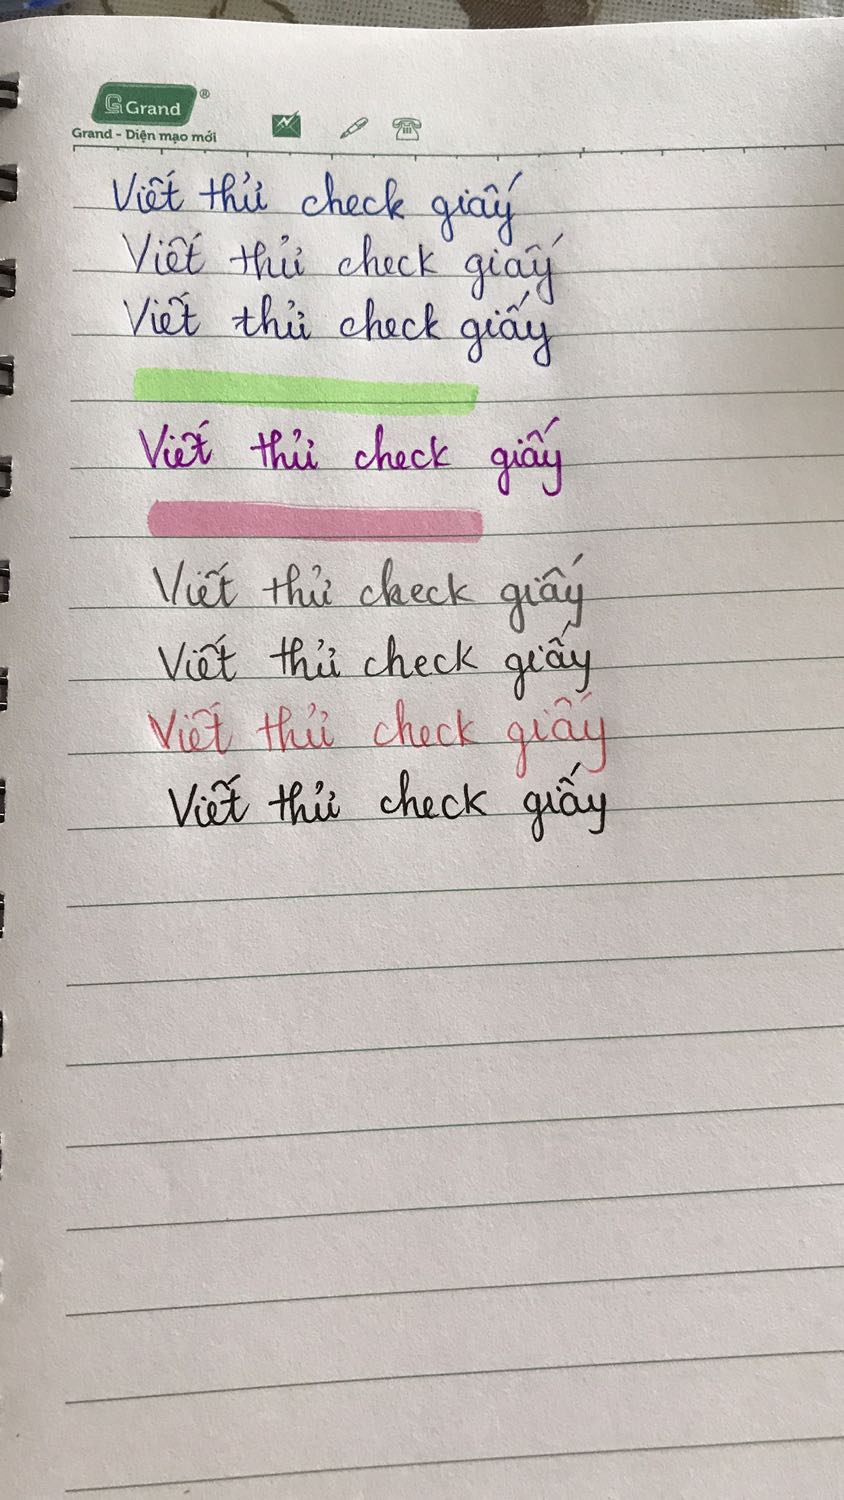 Grand®
Grand - Diện mạo mới
Viết thử check giấy
Viết thử check giấy
Viết thử check giấy
Viết thử check giấy
Viết thử check giấy
Viết thử check giấy
Viết thử check giấy
Viết thử check giấy